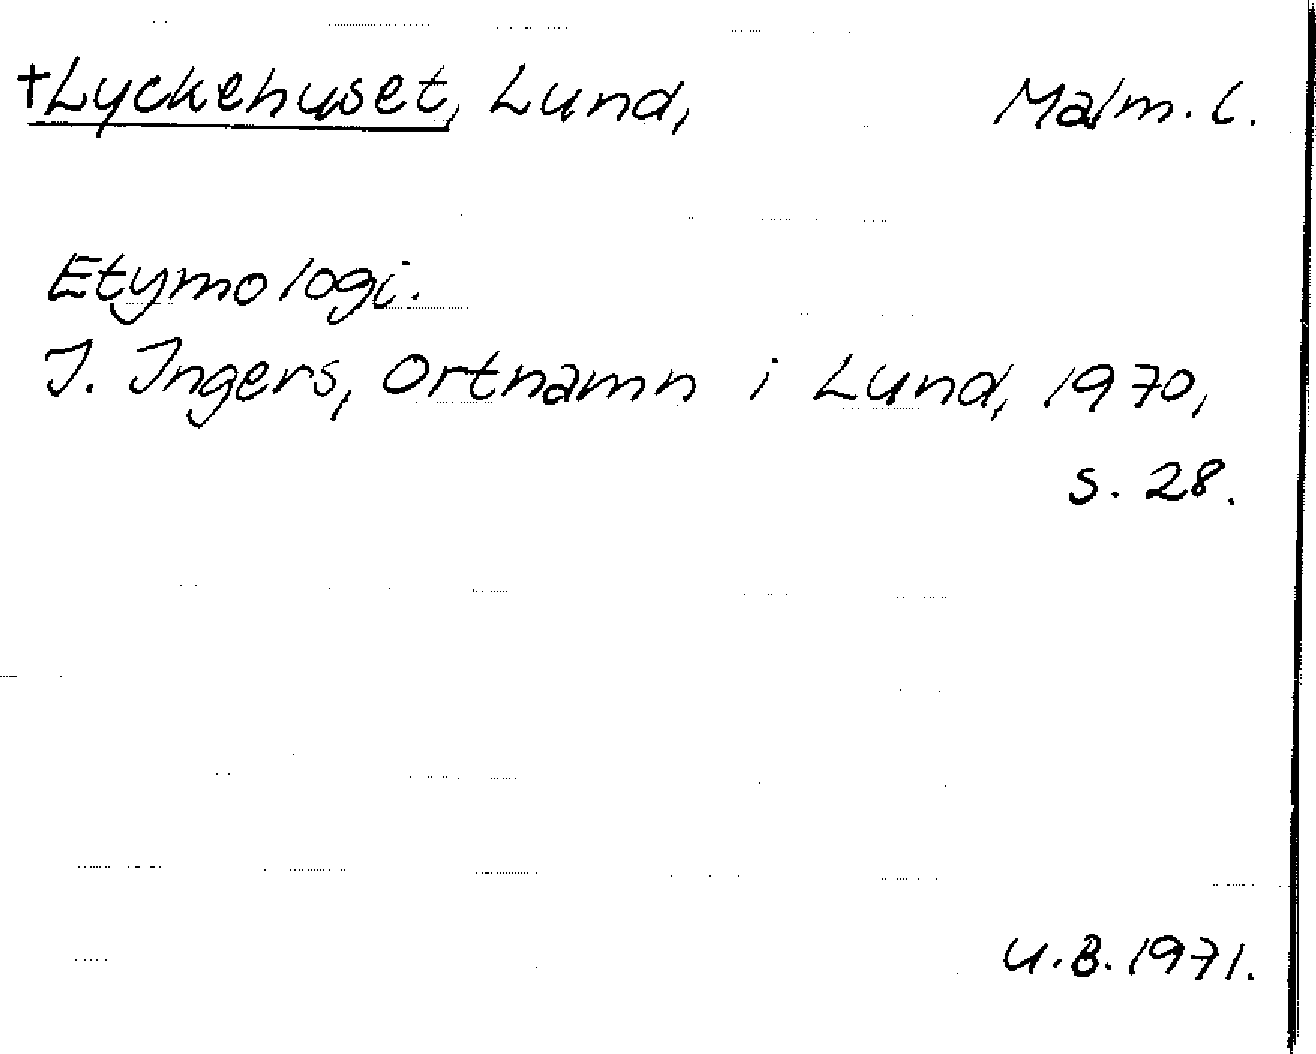 †Lyckehuset, Lund, Malm. l.
Etymologi.
I. Ingers, Ortnamn i Lund, 1970,
s. 28.
U.B. 1971.